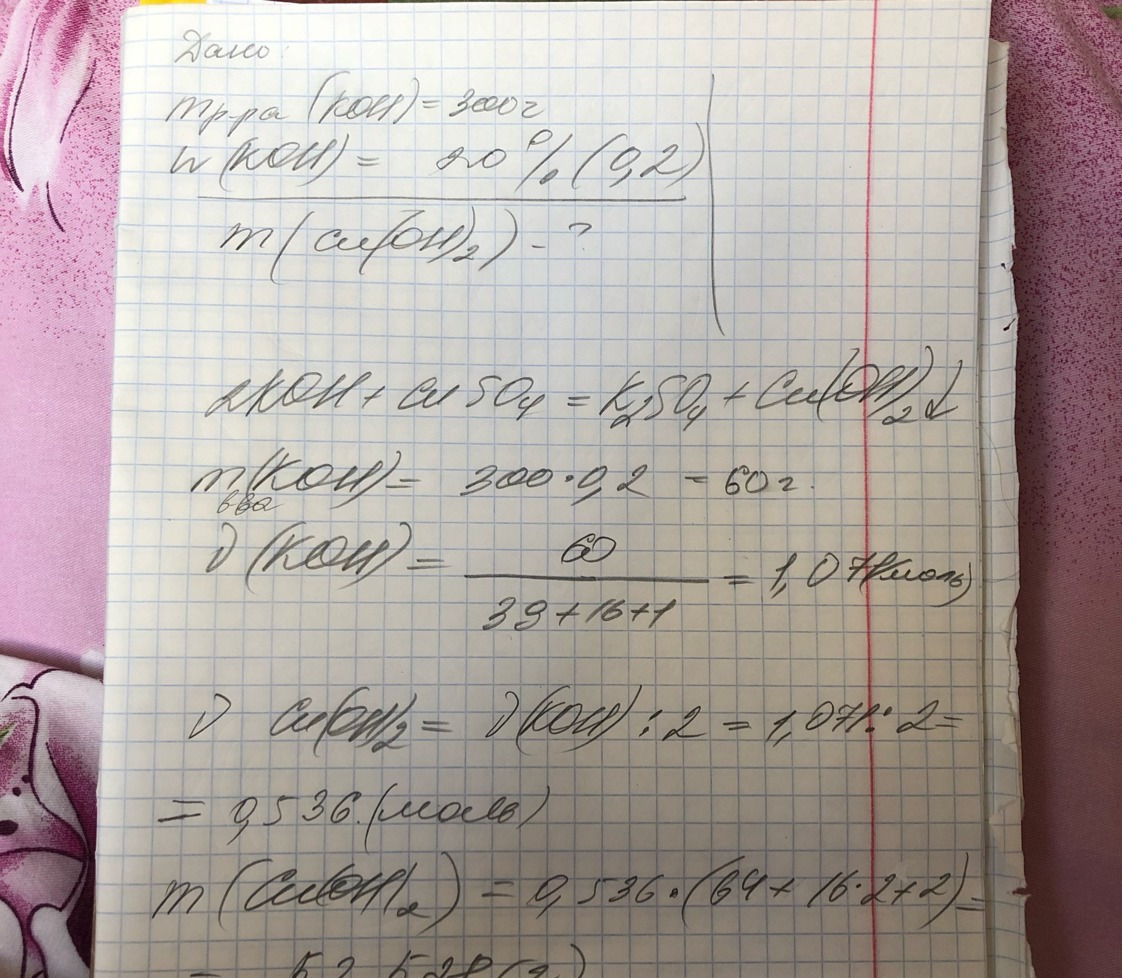 Дано:
mр-ра (KOH) = 300г
w(KOH) = 20% (0,2)
m(Cu(OH)2) - ?
2KOH + CuSO4 = K2SO4 + Cu(OH)2↓
m(KOH) = 300·0,2 = 60г.
в-ва
ν(KOH) = 60 / 39+16+1 = 1,071(моль)
ν Cu(OH)2 = ν(KOH) : 2 = 1,071 : 2 =
= 0,536 (моль)
m(Cu(OH)2) = 0,536·(64+16·2+2) =
= 52,528(г)